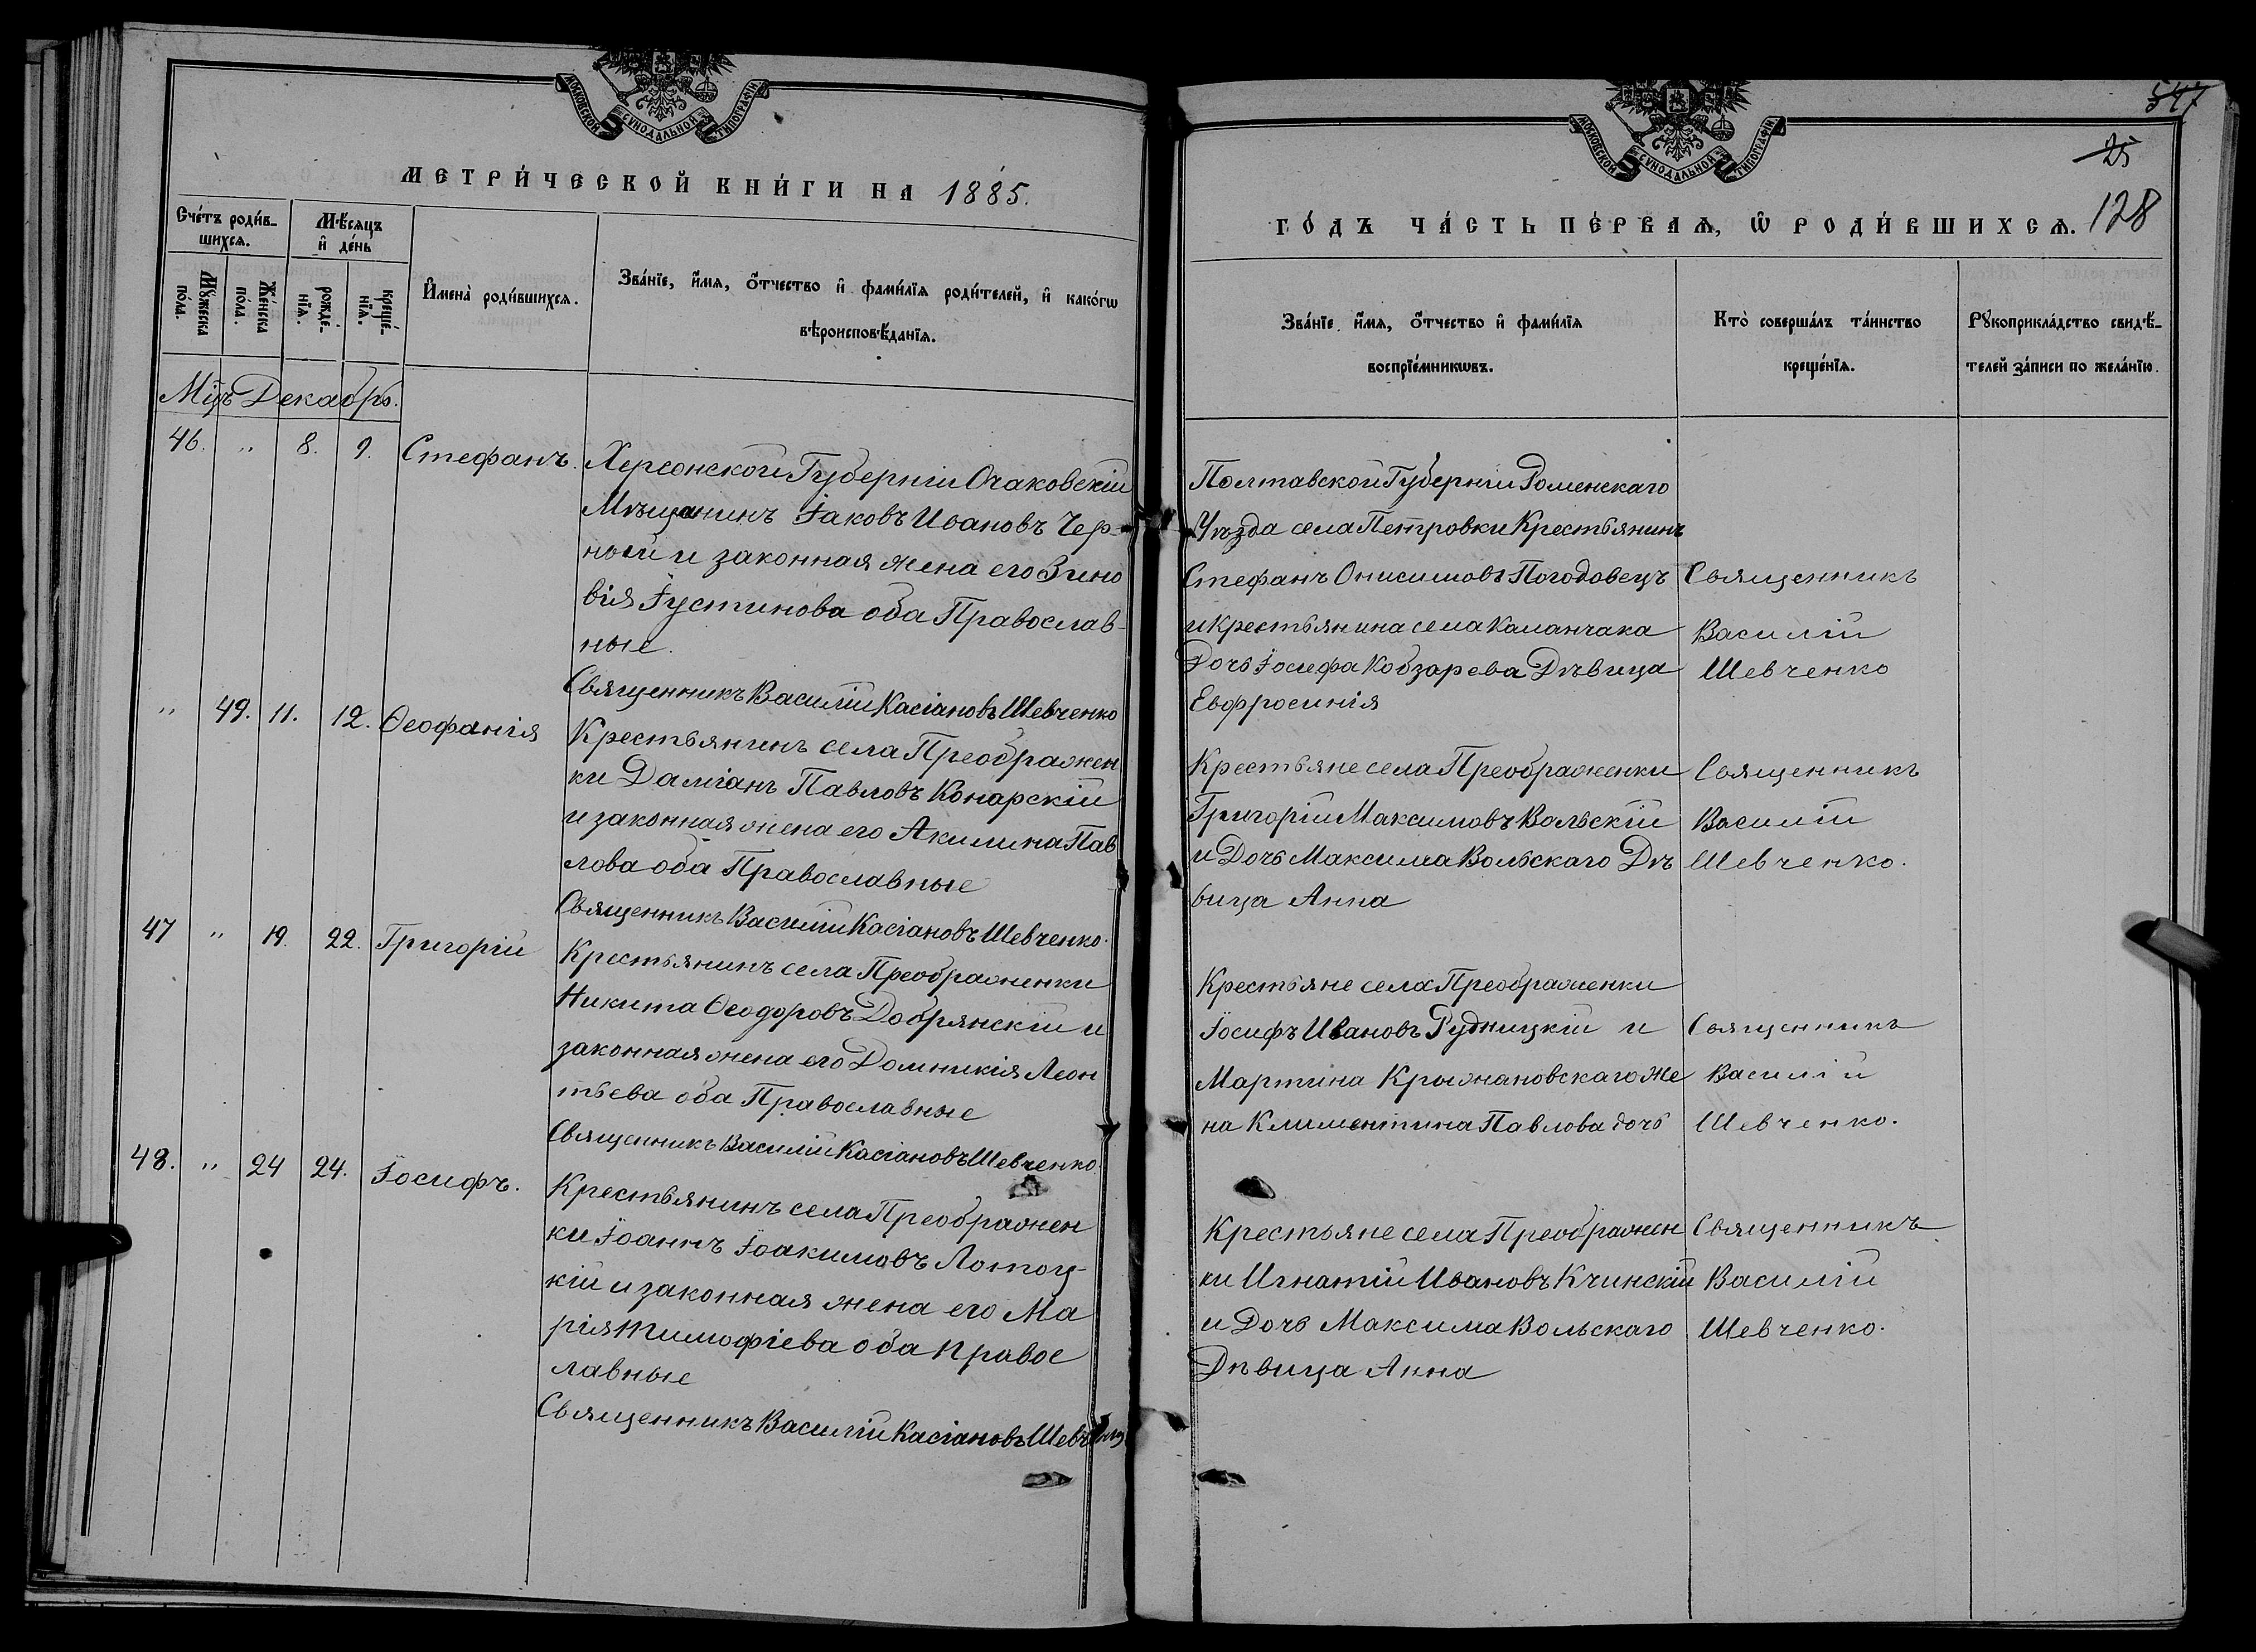 МОСКОВСКОЙ СѴНОДАЛЬНОЙ ТИПОГРАФІИ
МЕТРИ́ЧЕСКОЙ КНИ́ГИ НА 1885.
Сче́тъ роди́в-
шихсѧ.
Мꙋ́жеска
по́ла.
Же́нска
по́ла.
Мѣ́сѧцъ
и҆ де́нь
рожде́-
нїѧ.
креще́-
нїѧ.
И҆мена̀ роди́вшихсѧ.
Зва́нїе, и҆́мѧ, ѻ҆́тчество и҆ фами́лїѧ роди́телей, и҆ како́гѡ
вѣроисповѣ́данїѧ.
Мцъ Декабрь.
46. „ 8. 9. Стефанъ.
Херсонской Губерніи Очаковскій
Мѣщанинъ Іаковъ Ивановъ Чер-
ный и законная жена его Зино
вія Іустинова оба Православ-
ные.
Священникъ Василій Касіановъ Шевченко
„ 49. 11. 12. Ѳеофанія
Крестьянинъ села Преображен
ки Даміанъ Павловъ Конарскій
и законная жена его Акилина Пав
лова оба Православные
Священникъ Василій Касіановъ Шевченко.
47 „ 19. 22. Григорій
Крестьянинъ села Преображенки
Никита Ѳеодоровъ Добрянскій и
законная жена его Домникія Леон
тьева оба Православные
Священникъ Василій Касіановъ Шевченко.
48. „ 24 24. Іосифъ.
Крестьянинъ села Преображен
ки Іоаннъ Іоакимовъ Лотоц-
кій и законная жена его Ма
рія Тимофіева оба правос
лавные
Священникъ Василій Касіановъ Шевченко
547
25
128
МОСКОВСКОЙ СѴНОДАЛЬНОЙ ТИПОГРАФІИ
ГО́ДЪ ЧА́СТЬ ПЕ́РВАѦ, Ѽ РОДИ́ВШИХСѦ.
Зва́нїе, и҆́мѧ, ѻ҆́тчество и҆ фами́лїѧ
воспрїе́мникѡвъ.
Кто̀ соверша́лъ та́инство
креще́нїѧ.
Рꙋкоприкла́дство свидѣ́-
телей за́писи по жела́нїю.
Полтавской Губерніи Роменскаго
Уѣзда села Петровки Крестьянинъ
Стефанъ Онисимовъ Погодовецъ
и крестьянина села Каланчака
Дочь Іосифа Кобзарева Дѣвица
Евфросинія
Священникъ
Василій
Шевченко
Крестьяне села Преображенки
Григорій Максимовъ Вольскій
и Дочь Максима Вольскаго Дѣ
вица Анна
Священникъ
Василій
Шевченко.
Крестьяне села Преображенки
Іосифъ Ивановъ Рудницкій и
Мартина Крыжановскаго же
на Климентина Павлова дочь
Священникъ
Василій
Шевченко.
Крестьяне села Преображен
ки Игнатій Ивановъ Кчинскій
и Дочь Максима Вольскаго
Дѣвица Анна
Священникъ
Василій
Шевченко.